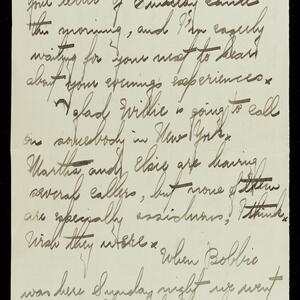 your letter of Sunday came
this morning, and I'm eagerly
waiting for your next to hear
about your evenings experiences.
glad Willie is going to call
on somebody in New York.
Martha and Elsie are having
several callers, but none of them
are especially assiduous, I think.
Wish they were.
When Bobbie
was here Sunday night we went